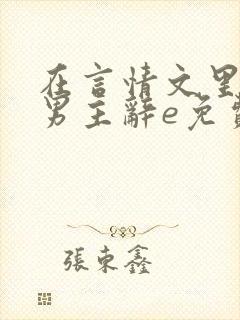 在言情文里
男主辭e免費
張東鑫